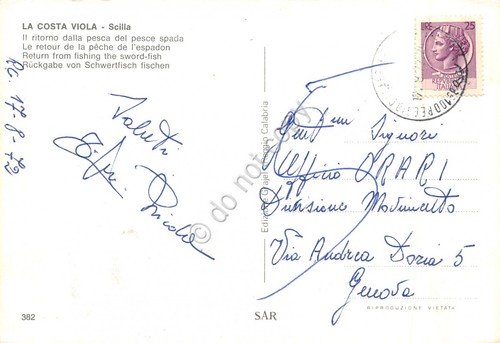 LA COSTA VIOLA - Scilla
Il ritorno dalla pesca del pesce spada
Le retour de la pêche de l'espadon
Return from fishing the sword-fish
Rückgabe von Schwertfisch fischen
RC 17-8-72
Saluti
LIRE 25
Gent.mi Signori
Ufficio ORARI
Divisione Movimento
Via Andrea Doria 5
Genova
do not copy
RIPRODUZIONE VIETATA
382
SAR